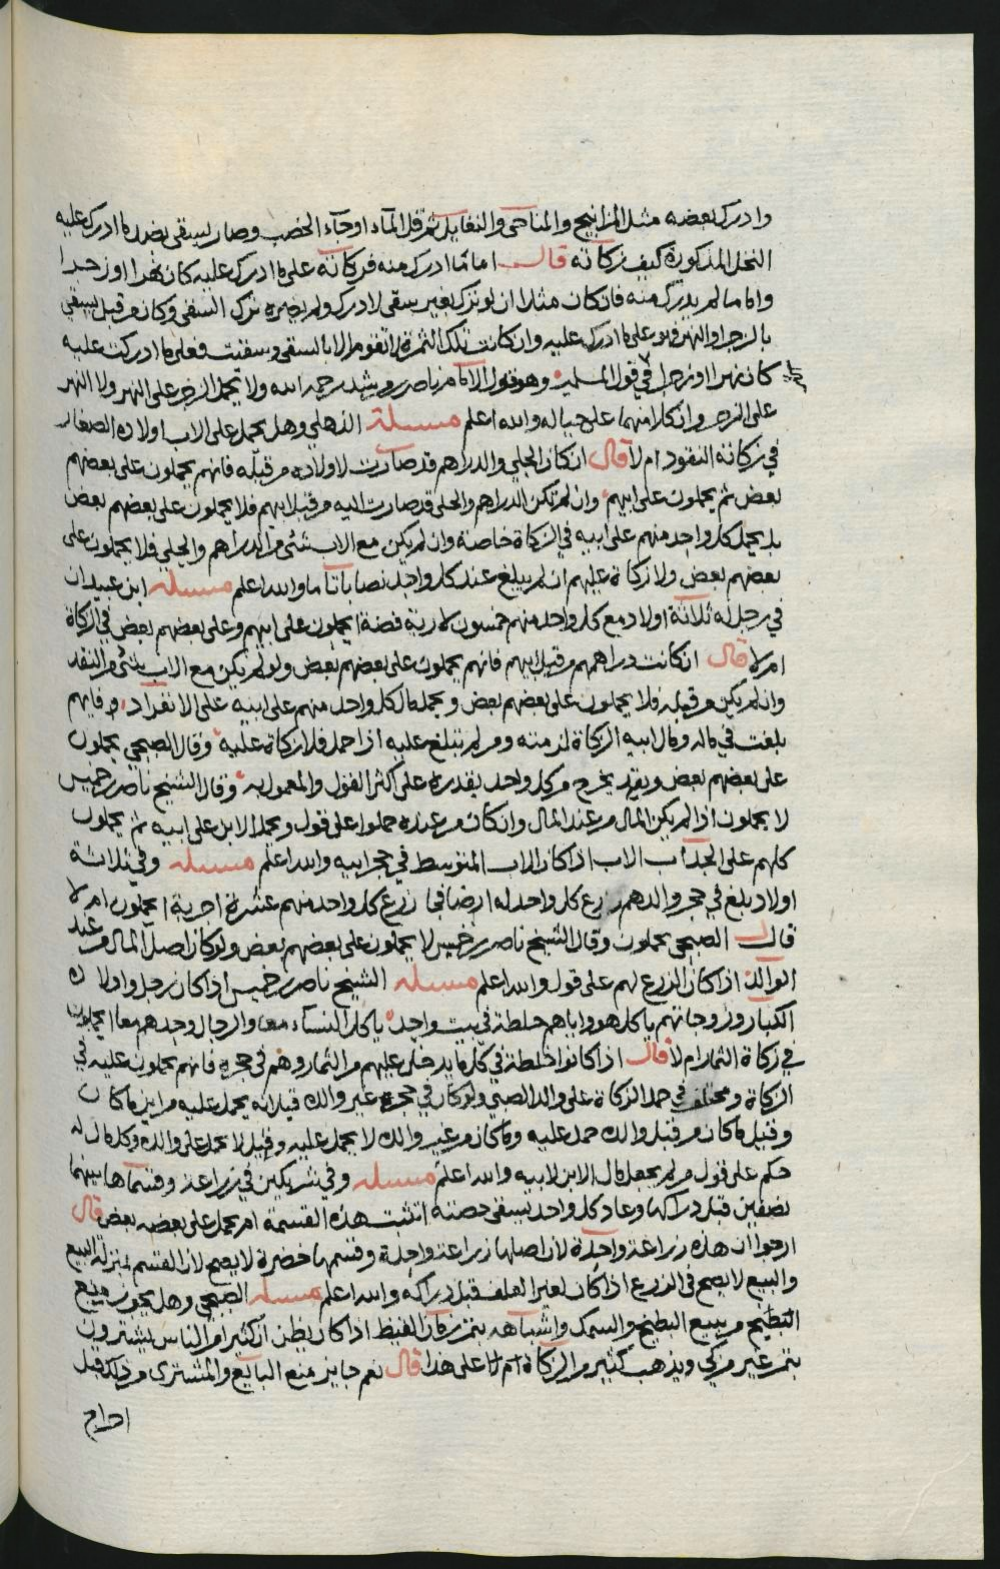 وادرك بعضه مثل المزانيج والمناحي والنغايل ثم قل الماء او جاء الخصب وصار يسقى بضد ما ادرك عليه
النخل المذكورة كيف زكاته قال اما ما ادرك منه فزكاته على ما ادرك عليه كان نهرا او زجرا
واما ما لم يدرك منه فان كان مثلا ان لو ترك بغير سقي لادرك ولم يضره ترك السقي وكان من قبل يسقى
بالزجر او النهر فهو على ما ادرك عليه وان كانت تلك الثمرة لا تقوم الا بالسقي وسقيت فعلى ما ادركت عليه
كان نهرا او زجرا في قول المسلمين وهو قول الامام ناصر بن مرشد رحمه الله ولا يحمل الزجر على النهر ولا النهر
على الزجر وان كلا منهما على حياله والله اعلم مسئلة الذهلي وهل يحمل على الاب اولاده الصغار
في زكاة النقود ام لا قال ان كان الحلي والدراهم قد صارت لاولاده من قبله فانهم يحملون على بعضهم
بعض ثم يحملون على ابيهم وان لم تكن الدراهم والحلي قد صارت اليه من قبل ابيهم فلا يحملون على بعضهم بعض
بل يحمل كل واحد منهم على ابيه في الزكاة خاصة وان لم يكن مع الاب شئ من الدراهم والحلي فلا يحملون على
بعضهم بعض ولا زكاة عليهم ان لم يبلغ عند كل واحد نصابا تاما والله اعلم مسئلة ابن عبيدان
في رجل له ثلاثة اولاد مع كل واحد منهم خمسون لارية فضة ايحملون على ابيهم وعلى بعضهم بعض في الزكاة
ام لا قال ان كانت دراهمهم من قبل ابيهم فانهم يحملون على بعضهم بعض ولو لم يكن مع الاب شئ من النقد
وان لم يكن من قبله فلا يحملون على بعضهم بعض ويحمل مال كل واحد منهم على ابيه على الانفراد فايهم
بلغت في ماله ومال ابيه الزكاة لزمته ومن لم تبلغ عليه اذا حمل فلا زكاة عليه وقال الصبحي يحملون
على بعضهم بعض يخرج من كل واحد بقدره على اكثر القول والمعمول به وقال الشيخ ناصر بن خميس
لا يحملون اذا لم يكن المال من عند المال وان كان من عنده حملوا على قول ويحمل الابن على ابيه ثم يحملون
كلهم على الجد اب الاب اذا كان الاب المتوسط في حجر ابيه والله اعلم مسئله وفي ثلاثة
اولاد بلغ في حجر والدهم زرع كل واحد له ارضا فجا زرع كل واحد منهم عشرة اجرية ايحملون ام لا
قال الصبحي يحملون وقال الشيخ ناصر بن خميس لا يحملون على بعضهم بعض ولو كان اصل المال من عند
الوالد اذا كان الزرع لهم على قول والله اعلم مسئله الشيخ ناصر بن خميس اذا كان رجل واولاده
الكبار وزوجاتهم ياكل هو واياهم خلطة في بيت واحد ياكل النساء معا والرجال وحدهم معا ايحملون
في زكاة الثمار ام لا قال اذا كانوا خلطة في كل ما يدخل عليهم من الثمار وهم في حجره فانهم يحملون عليه في
الزكاة ومختلف في حمل الزكاة على والد الصبي ولو كان في حجره غير والده قيل انه يحمل عليه من اين ما كان
وقيل ما كان من قبل والده حمل عليه وما كان من غير والده لا يحمل عليه وقيل لا يحمل على والده وكل مال له
حكم على قول من لم يجعل مال الابن لابيه والله اعلم مسئله وفي شريكين في زراعة وقسماها بينهما
نصفين قبل دراكها وعاد كل واحد يسقي حصته اتثبت هذه القسمة ام يحمل على بعضه بعض قال
ارجوا ان هذه زراعة واحدة لان اصلها زراعة واحدة وقسمها خضرة لا يصح لان القسم بمنزلة البيع
والبيع لا يصح في الزرع اذا كان لغير العلف قبل دراكه والله اعلم مسئله الصبحي وهل يجوز منع
البطيخ من يبيع البطيخ والسمك واشباهه بتمر زمان القيظ اذا كان يظن ان كثيرا من الناس يشترون
بتمر غير مزكى ويذهب كثير من الزكاة ام لا على هذا قال نعم جايز منع البايع والمشتري من ذلك قبل
اخراج